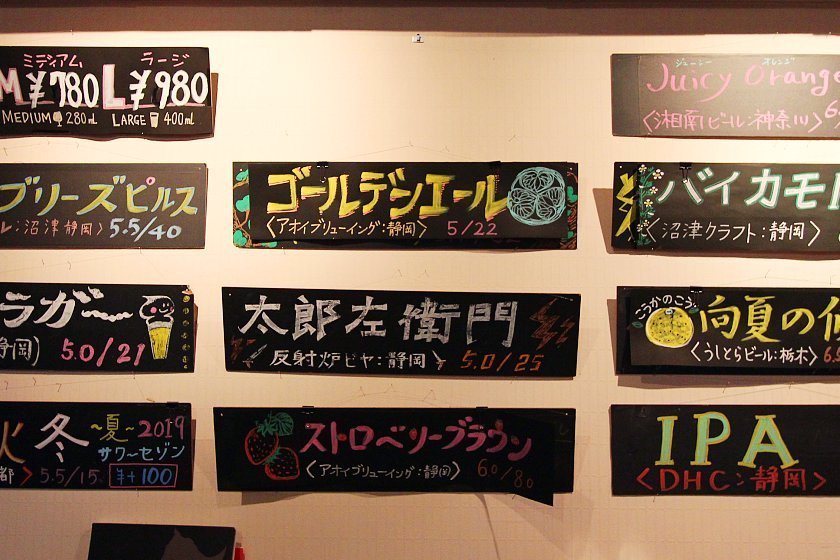 ミディアム ラージ
M¥780 L¥980
MEDIUM 280ml LARGE 400ml
ブリーズピルス
レ:沼津静岡〉 5.5/40
ラガー
静岡) 5.0/21
冬 〜夏〜 2019
サワーセゾン
都〉 5.5/15 ¥+100
ゴールデンエール
〈アオイブリューイング:静岡〉 5/22
太郎左衛門
〈反射炉ビヤ:静岡〉 5.0/25
ストロベリーブラウン
〈アオイブリューイング:静岡〉 6.0/80
ジューシー オレンジ
Juicy Orange
〈湘南ビール:神奈川〉
バイカモ
〈沼津クラフト:静岡〉
こうかのこう
向夏の
〈うしとらビール:栃木〉
IPA
〈DHC:静岡〉